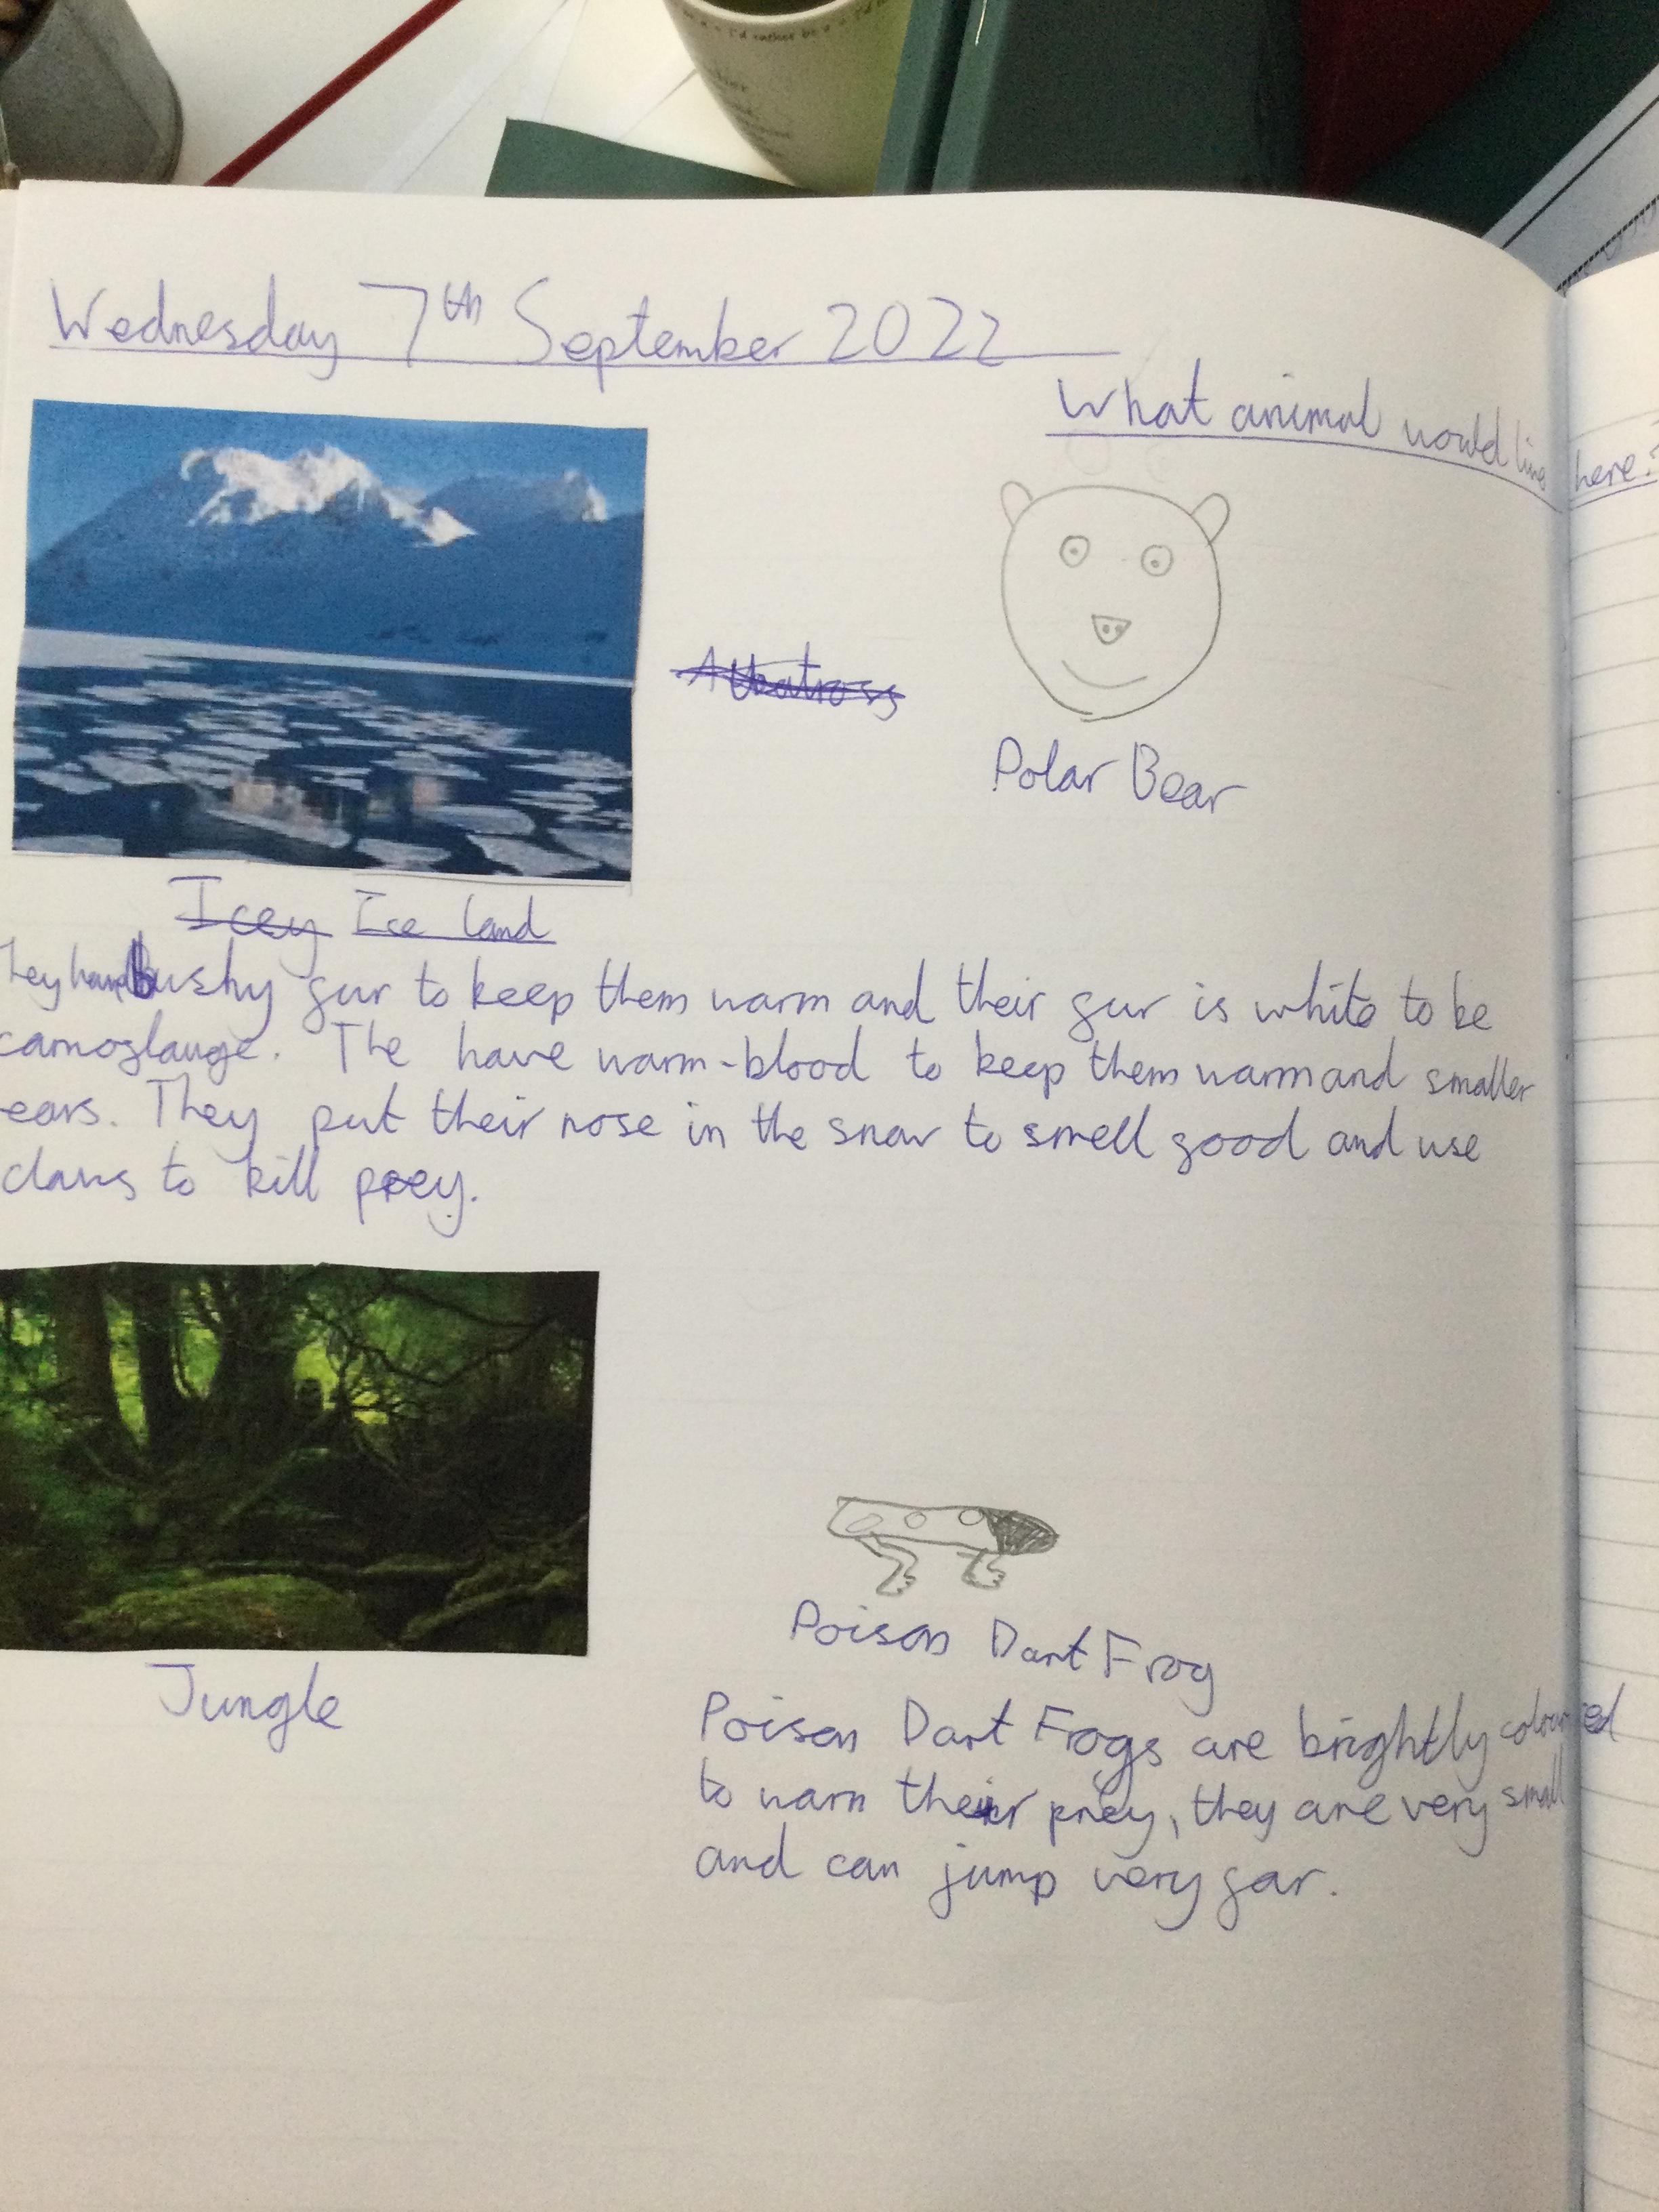 I'd rather be a
Wednesday 7th September 2022
What animal would live here?
Albatross
Polar Bear
Icey Ice land
They have bushy fur to keep them warm and their fur is white to be
camoflauge. The have warm-blood to keep them warm and smaller
ears. They put their nose in the snow to smell food and use
claws to kill prey.
Jungle
Poison Dart Frog
Poison Dart Frogs are brightly coloured
to warn their prey, they are very small
and can jump very far.